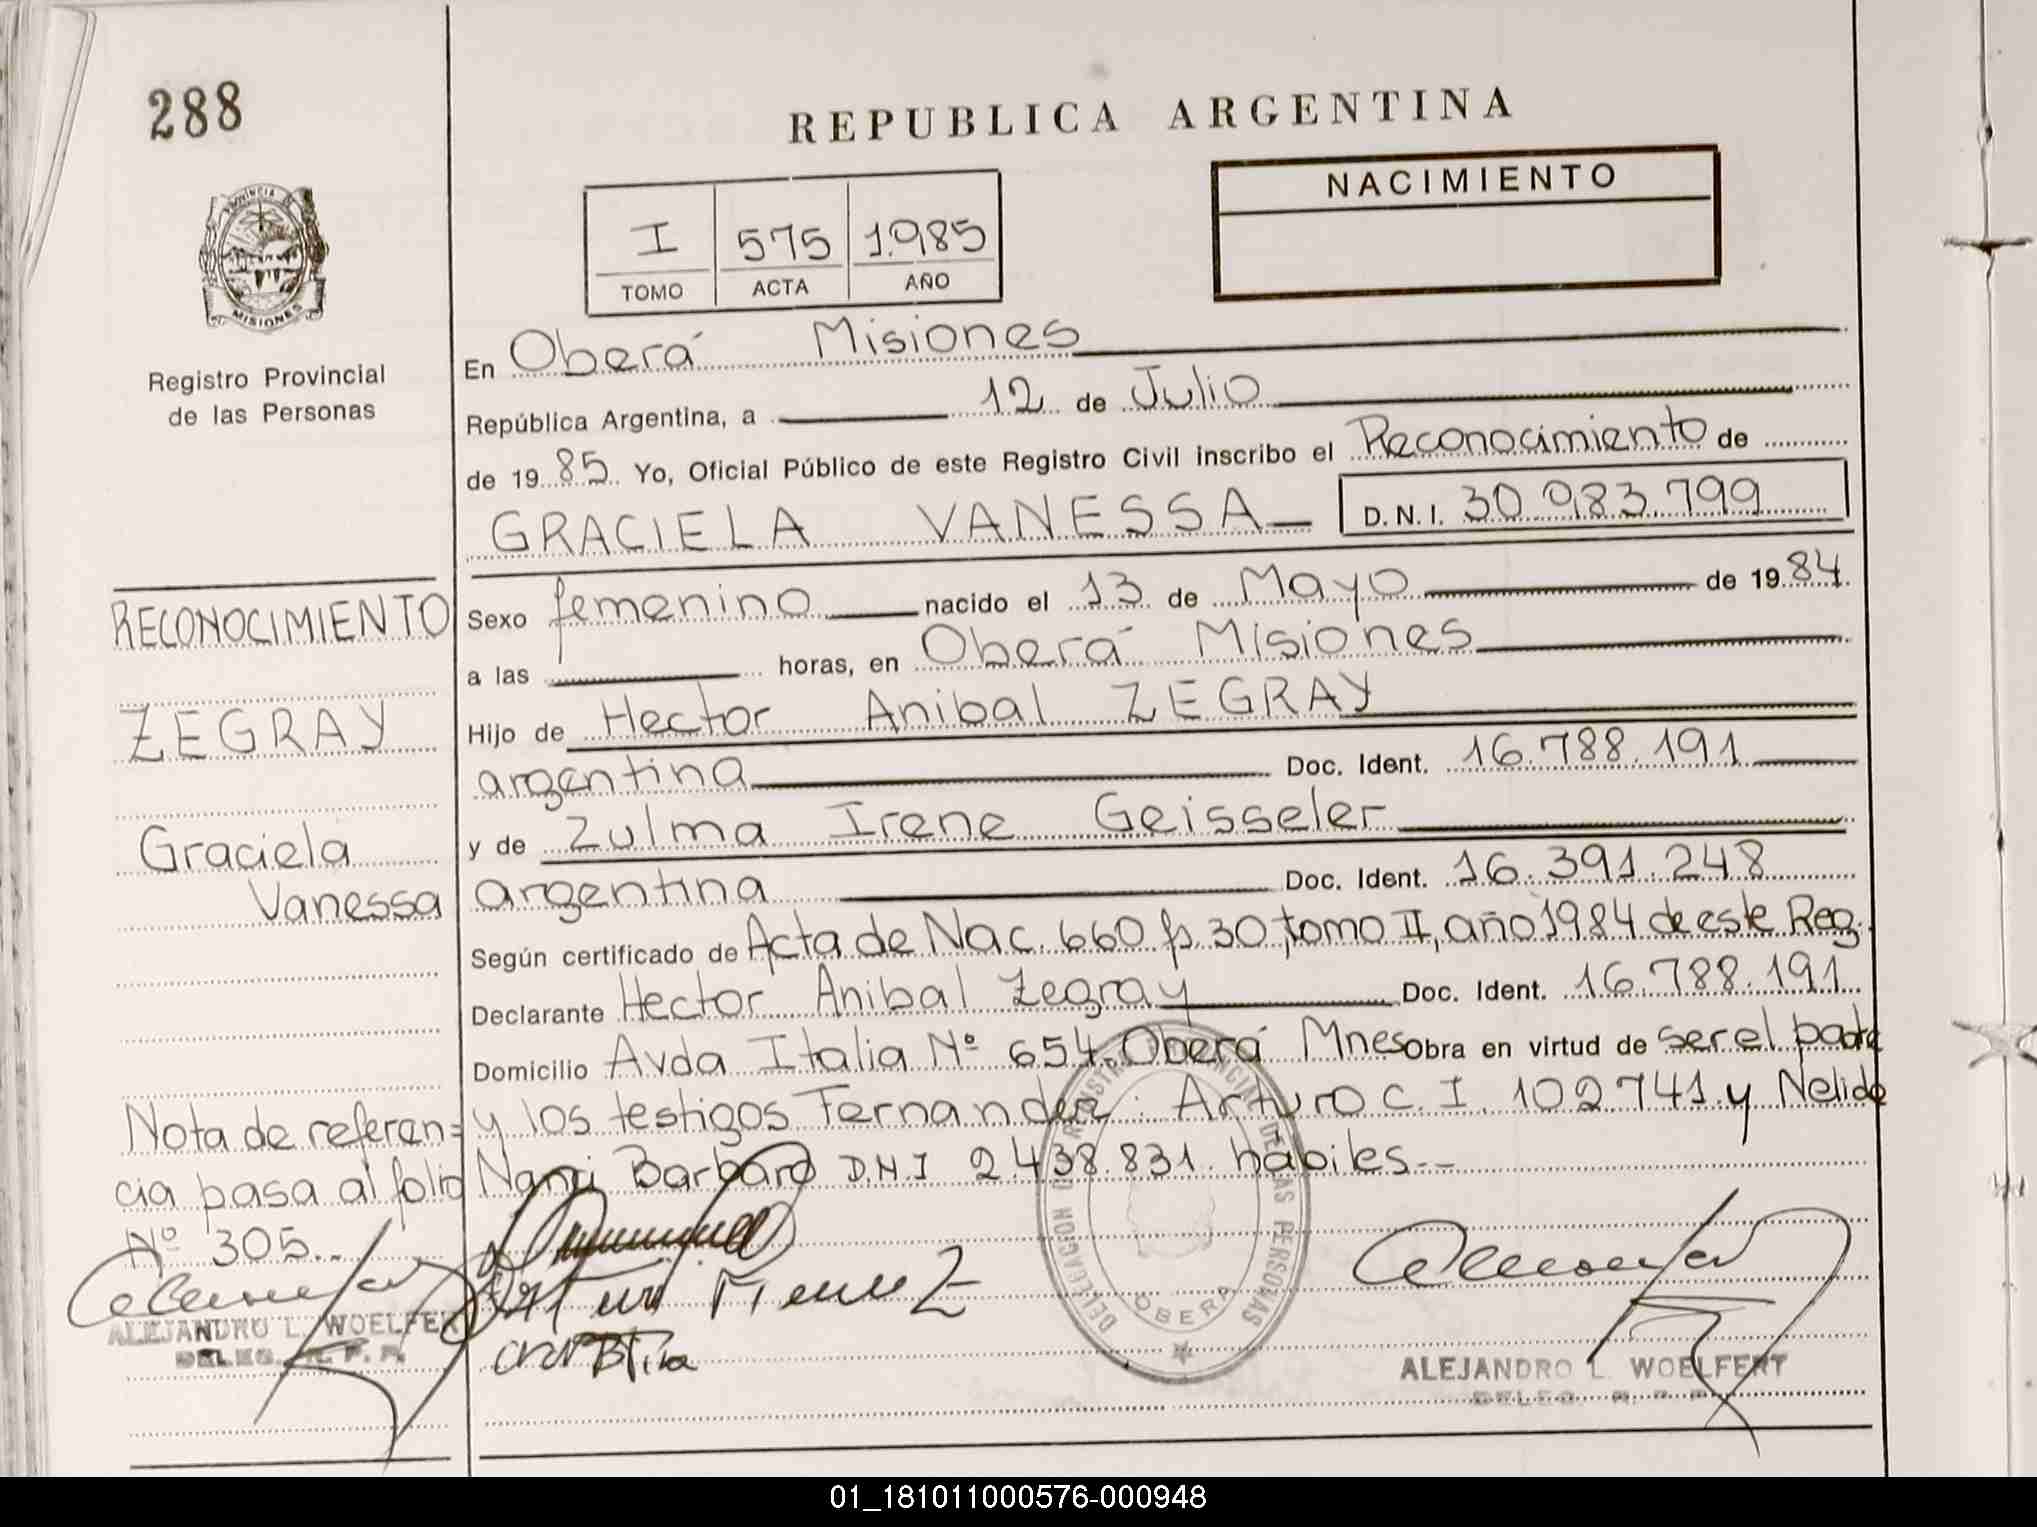 288
REPUBLICA ARGENTINA
NACIMIENTO
I 575 1.985
TOMO ACTA AÑO
PROVINCIA DE
MISIONES
Registro Provincial
de las Personas
En Oberá Misiones
República Argentina, a 12 de Julio
de 19 85. Yo, Oficial Público de este Registro Civil inscribo el Reconocimiento de
GRACIELA VANESSA D.N.I. 30.983.799
RECONOCIMIENTO
ZEGRAY
Graciela
Vanessa
Sexo femenino nacido el 13 de Mayo de 19 84.
a las horas, en Oberá Misiones
Hijo de Hector Anibal ZEGRAY
argentina Doc. Ident. 16.788.191
y de Zulma Irene Geisseler
argentina Doc. Ident. 16.391.248
Según certificado de Acta de Nac. 660 fs. 30, tomo II, año 1984 de este Reg.
Declarante Hector Anibal Zegray Doc. Ident. 16.788.191
Domicilio Avda Italia Nº 654. Oberá Mnes Obra en virtud de ser el padre
y los testigos Fernandez Arturo C.I. 102741. y Nelida
Nanci Barbaro D.N.I 2.438.831. habiles.--
Nota de referen=
cia pasa al folio
Nº 305.-
DELEGACION REGISTRO PROVINCIAL DE LAS PERSONAS
OBERA
ALEJANDRO L. WOELFERT
DELEG. R. P. P.
ALEJANDRO L. WOELFERT
DELEG. R. P. P.
01_181011000576-000948